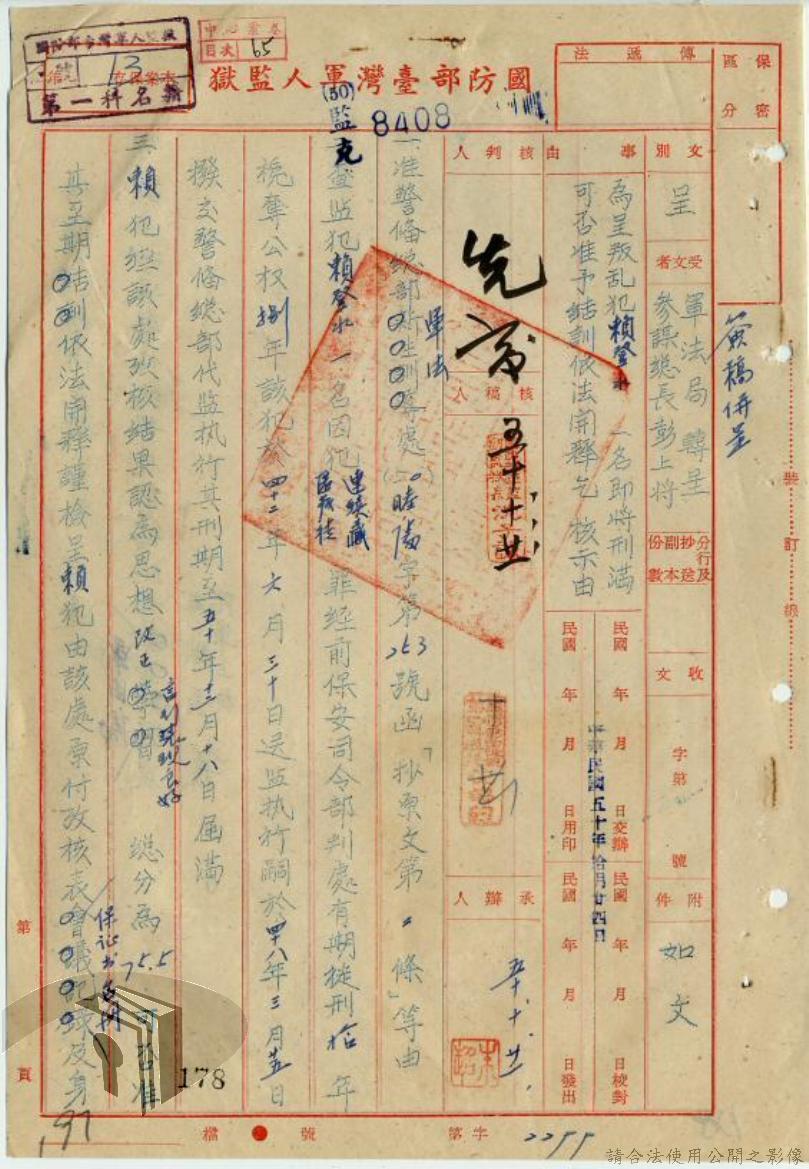 國防部臺灣軍人監獄
(50)監克
8408
中心索卷
目次 65
13
第一科名籍
傳遞法
保密區分
簽稿併呈
裝訂線
文別
呈
受文者
軍法局轉呈
參謀總長彭上將
分行及抄送副本份數
收文
字第
號
附件
如文
事由
為呈叛乱犯賴登水一名即將刑滿
可否准予結訓依法開釋乞核示由
民國 年 月 日交辦
民國 年 月 日校對
中華民國五十年拾月廿四日
民國 年 月 日用印
民國 年 月 日發出
核判人
核稿人
五十、十、廿
承辦人
五十.十.廿.
一、准警備總部
軍法
處
字第253號函「抄原文第二條」等由
二、查監犯賴登水一名因犯
連續藏
罪經前保安司令部判處有期徒刑拾年
褫奪公权捌年該犯於四十二年六月三十日送監执行嗣於四八年三月廿五日
撥交警備總部代監执行其刑期至五十年十二月十八日屆滿
三、賴犯經該處攷核結果認為思想改正學習
言行表現良好
總分為75.5可否准
其至期結訓依法開釋謹檢呈賴犯由該處原付攷核表會議記錄及身
保証書各
第
頁
178
197
檔 號
字第
2299
請合法使用公開之影像